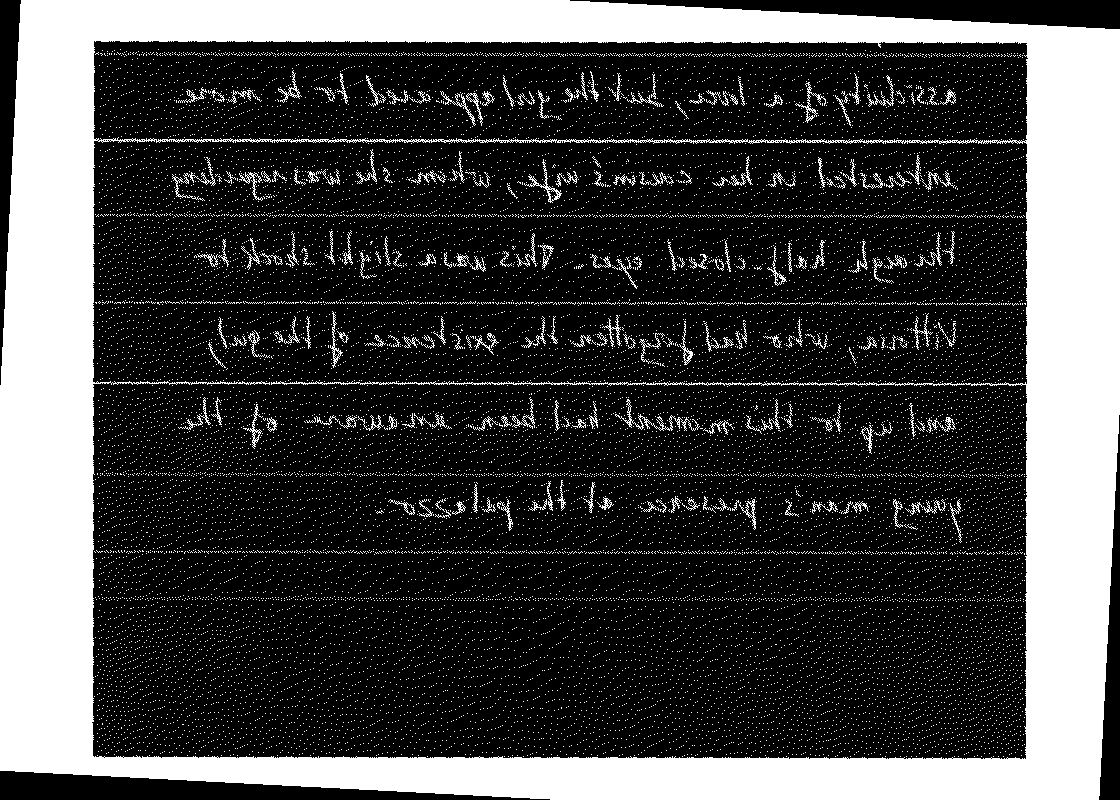 assiduity of a lover, but the girl appeared to be more
interested in her cousin's wife, whom she was regarding
through half-closed eyes. This was a slight shock to
Vittoria, who had forgotten the existence of the girl,
and up to this moment had been unaware of the
young man's presence at the palazzo.